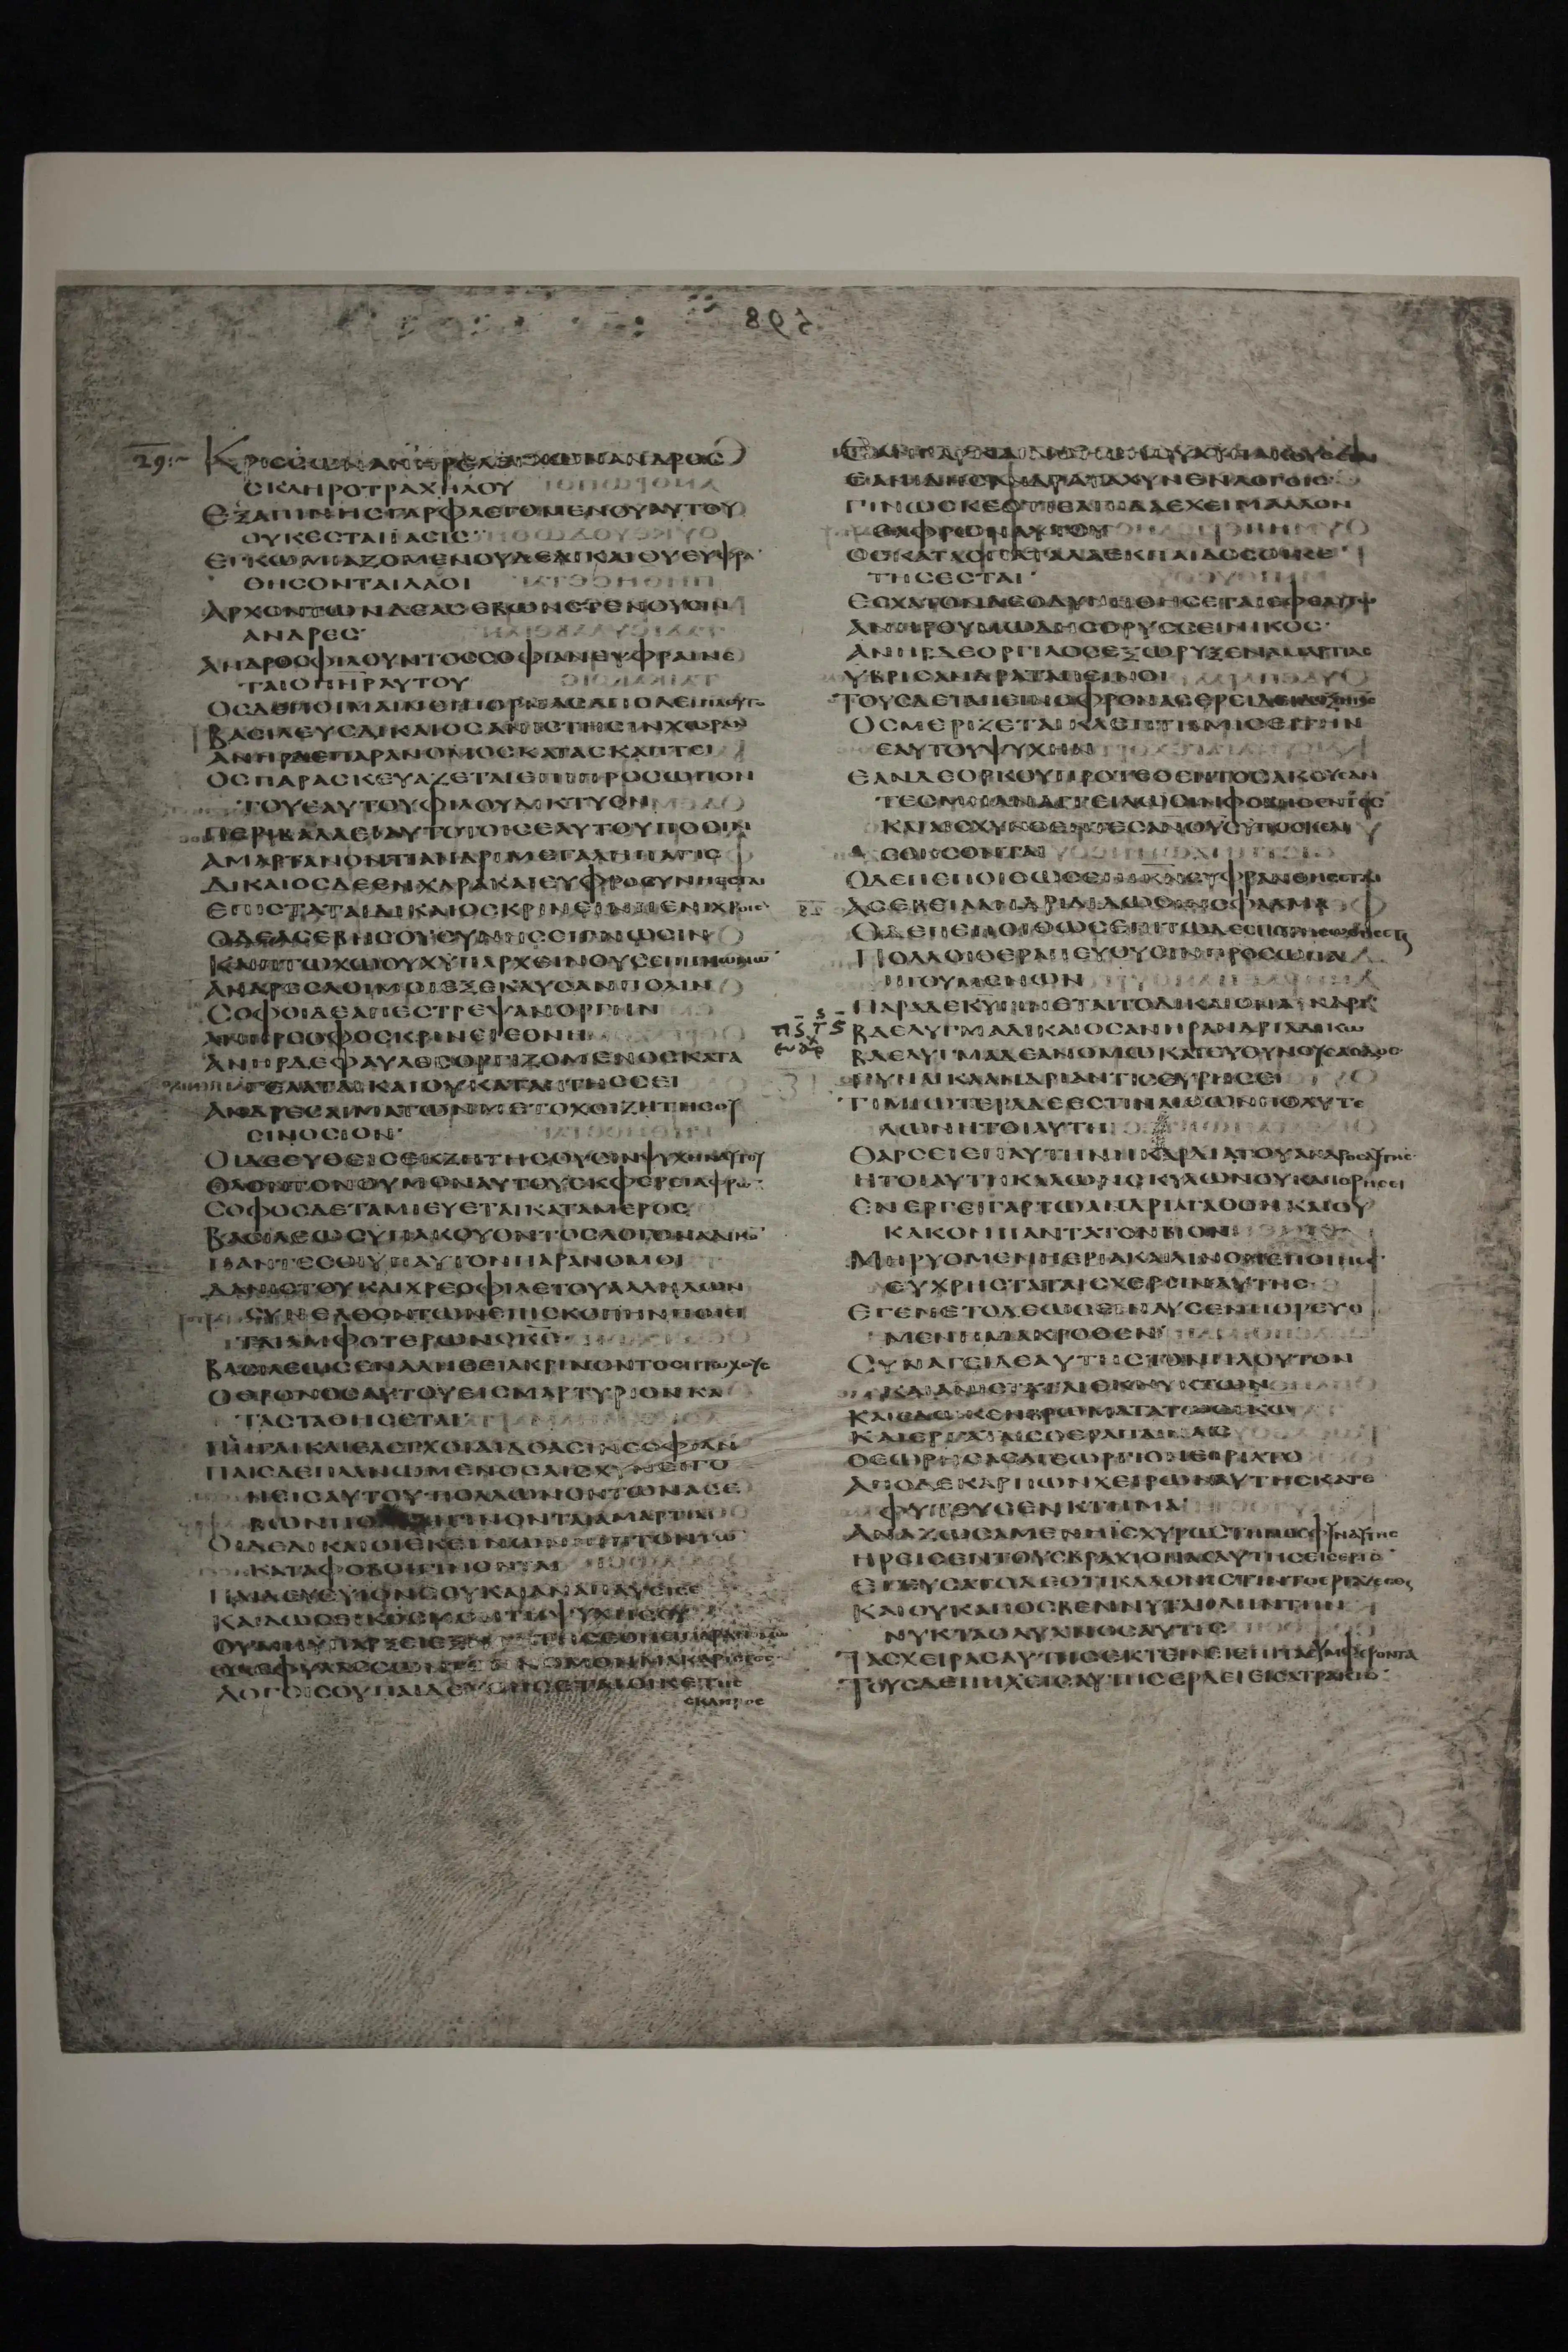 29
ΚΡΙCCΩΝΑΝΗΡΕΛΕΓΧΩΝΑΝΔΡΟC
CΚΛΗΡΟΤΡΑΧΗΛΟΥ
ΕΞΑΠΙΝΗCΓΑΡΦΛΕΓΟΜΕΝΟΥΑΥΤΟΥ
ΟΥΚΕCΤΑΙΙΑCΙC
ΕΓΚΩΜΙΑΖΟΜΕΝΟΥΔΕΔΙΚΑΙΟΥΕΥΦΡΑ
ΘΗCΟΝΤΑΙΛΑΟΙ
ΑΡΧΟΝΤΩΝΔΕΑCΕΒΩΝCΤΕΝΟΥCΙΝ
ΑΝΔΡΕC
ΑΝΔΡΟCΦΙΛΟΥΝΤΟCCΟΦΙΑΝΕΥΦΡΑΙΝΕ
ΤΑΙΟΠΗΡΑΥΤΟΥ
ΟCΔΕΠΟΙΜΑΙΝΕΙΠΟΡΝΑCΑΠΟΛΕΙΠΛΟΥΤΟ
ΒΑCΙΛΕΥCΔΙΚΑΙΟCΑΝΙCΤΗCΙΝΧΩΡΑΝ
ΑΝΗΡΔΕΠΑΡΑΝΟΜΟCΚΑΤΑCΚΑΠΤΕΙ
ΟCΠΑΡΑCΚΕΥΑΖΕΤΑΙΕΠΙΠΡΟCΩΠΟΝ
ΤΟΥΕΑΥΤΟΥΦΙΛΟΥΔΙΚΤΥΟΝ
ΠΕΡΙΒΑΛΛΕΙΑΥΤΟΤΟΙCΕΑΥΤΟΥΠΟCΙΝ
ΑΜΑΡΤΑΝΟΝΤΙΑΝΔΡΙΜΕΓΑΛΗΠΑΓΙC
ΔΙΚΑΙΟCΔΕΕΝΧΑΡΑΚΑΙΕΥΦΡΟCΥΝΗΕCΤΑΙ
ΕΠΙCΤΑΤΑΙΔΙΚΑΙΟCΚΡΙΝΕΙΝΠΕΝΙΧΡΟΙC
ΟΔΕΑCΕΒΗCΟΥCΥΝΗCΕΙΓΝΩCΙΝ
ΚΑΙΠΤΩΧΩΟΥΧΥΠΑΡΧΕΙΝΟΥCΕΠΙΓΝΩΜΩ
ΑΝΔΡΕCΛΟΙΜΟΙΕΞΕΚΑΥCΑΝΠΟΛΙΝ
CΟΦΟΙΔΕΑΠΕCΤΡΕΨΑΝΟΡΓΗΝ
ΑΝΗΡCΟΦΟCΚΡΙΝΕΙΕΘΝΗ
ΑΝΗΡΔΕΦΑΥΛΟCΟΡΓΙΖΟΜΕΝΟCΚΑΤΑ
ΓΕΛΑΤΑΙΚΑΙΟΥΚΑΤΑΠΤΗCCΕΙ
ΑΝΔΡΕCΑΙΜΑΤΩΝΜΕΤΟΧΟΙΖΗΤΗCΟΥ
CΙΝΟCΙΟΝ
ΟΙΔΕΕΥΘΕΙCΕΚΖΗΤΗCΟΥCΙΝΨΥΧΗΝΑΥΤΟΥ
ΟΛΟΝΤΟΝΘΥΜΟΝΑΥΤΟΥΕΚΦΕΡΕΙΑΦΡΩ
CΟΦΟCΔΕΤΑΜΙΕΥΕΤΑΙΚΑΤΑΜΕΡΟC
ΒΑCΙΛΕΩCΥΠΑΚΟΥΟΝΤΟCΛΟΓΟΝΑΔΙΚΟ
ΠΑΝΤΕCΟΙΥΠΑΥΤΟΝΠΑΡΑΝΟΜΟΙ
ΔΑΝΙCΤΟΥΚΑΙΧΡΕΟΦΙΛΕΤΟΥΑΛΛΗΛΩΝ
CΥΝΕΛΘΟΝΤΩΝΕΠΙCΚΟΠΗΝΠΟΙΕΙ
ΤΑΙΑΜΦΟΤΕΡΩΝΟΚC
ΒΑCΙΛΕΩCΕΝΑΛΗΘΕΙΑΚΡΙΝΟΝΤΟCΠΤΩΧΟΥC
ΟΘΡΟΝΟCΑΥΤΟΥΕΙCΜΑΡΤΥΡΙΟΝΚΑ
ΤΑCΤΑΘΗCΕΤΑΙ
ΠΛΗΓΑΙΚΑΙΕΛΕΓΧΟΙΔΙΔΟΑCΙΝCΟΦΙΑΝ
ΠΑΙCΔΕΠΛΑΝΩΜΕΝΟCΑΙCΧΥΝΕΙΓΟ
ΝΕΙCΑΥΤΟΥΠΟΛΛΩΝΟΝΤΩΝΑCΕ
ΒΩΝΠΟΛΛΑΙΓΙΝΟΝΤΑΙΑΜΑΡΤΙΑΙ
ΟΙΔΕΔΙΚΑΙΟΙΕΚΕΙΝΩΝΠΙΠΤΟΝΤΩ
ΚΑΤΑΦΟΒΟΙΓΙΝΟΝΤΑΙ
ΠΑΙΔΕΥΕΥΙΟΝCΟΥΚΑΙΑΝΑΠΑΥCΕΙCΕ
ΚΑΙΔΩCΕΙΚΟCΜΟΝΤΗΨΥΧΗCΟΥ
ΟΥΜΗΥΠΑΡΞΕΙΕΞΗΓΗΤΗCΕΘΝΕΙΠΑΡΑΝΟΜΩ
ΟΔΕΦΥΛΑCCΩΝΤΟΝΝΟΜΟΝΜΑΚΑΡΙCΤΟC
ΛΟΓΟΙCΟΥΠΑΙΔΕΥΘΗCΕΤΑΙΟΙΚΕΤΗC
CΚΛΗΡΟC
ΕΑΝΙΔΗCΑΝΔΡΑΤΑΧΥΝΕΝΛΟΓΟΙC
ΓΙΝΩCΚΕΟΤΙΕΛΠΙΔΑΕΧΕΙΜΑΛΛΟΝ
ΟΑΦΡΩΝΑΥΤΟΥ
ΟCΚΑΤΑCΠΑΤΑΛΑΕΚΠΑΙΔΟCΟΙΚΕ
ΤΗCΕCΤΑΙ
ΕCΧΑΤΟΝΔΕΟΔΥΝΗΘΗCΕΤΑΙΕΦΕΑΥΤΩ
ΑΝΗΡΘΥΜΩΔΗCΟΡΥCCΕΙΝΙΚΟC
ΑΝΗΡΔΕΟΡΓΙΛΟCΕΞΩΡΥΞΕΝΑΜΑΡΤΙΑC
ΥΒΡΙCΑΝΔΡΑΤΑΠΕΙΝΟΙ
ΤΟΥCΔΕΤΑΠΕΙΝΟΦΡΟΝΑCΕΡΕΙΔΕΙ
ΟCΜΕΡΙΖΕΤΑΙΚΛΕΠΤΗΜΙCΕΙΤΗΝ
ΕΑΥΤΟΥΨΥΧΗΝ
ΕΑΝΔΕΟΡΚΟΥΠΡΟΤΕΘΕΝΤΟCΑΚΟΥCΑΝ
ΤΕCΜΗΑΝΑΓΓΕΙΛΩCΙΝΦΟΒΗΘΕΝΤΕC
ΚΑΙΑΙCΧΥΝΘΕΝΤΕCΑΝΘΥCΥΠΟCΚΕΛΙ
CΘΗCΟΝΤΑΙ
ΟΔΕΠΕΠΟΙΘΩCΕΠΙΚΩΕΥΦΡΑΝΘΗCΕΤΑΙ
ΑCΕΒΕΙΑΑΝΔΡΙΔΙΔΩCΙΝCΦΑΛΜΑ
ΟΔΕΠΕΠΟΙΘΩCΕΠΙΤΩΔΕCΠΟΤΗCΩΘΗCΕΤΑΙ
ΠΟΛΛΟΙΘΕΡΑΠΕΥΟΥCΙΝΠΡΟCΩΠΑ
ΗΓΟΥΜΕΝΩΝ
ΠΑΡΑΔΕΚΥΓΙΝΕΤΑΙΤΟΔΙΚΑΙΟΝΑΝΔΡΙ
ΒΔΕΛΥΓΜΑΔΙΚΑΙΟCΑΝΗΡΑΝΔΡΙΑΔΙΚΩ
ΒΔΕΛΥΓΜΑΔΕΑΝΟΜΩΚΑΤΕΥΘΥΝΟΥCΑΟΔΟC
ΓΥΝΑΙΚΑΑΝΔΡΙΑΝΤΙCΕΥΡΗCΕΙ
ΤΙΜΙΩΤΕΡΑΔΕΕCΤΙΝΛΙΘΩΝΠΟΛΥΤΕ
ΛΩΝΗΤΟΙΑΥΤΗ
ΘΑΡCΕΙΕΠΑΥΤΗΝΗΚΑΡΔΙΑΤΟΥΑΝΔΡΟCΑΥΤΗC
ΗΤΟΙΑΥΤΗΚΑΛΩΝCΚΥΛΩΝΟΥΚΑΠΟΡΗCΕΙ
ΕΝΕΡΓΕΙΓΑΡΤΩΑΝΔΡΙΑΓΑΘΟΝΚΑΙΟΥ
ΚΑΚΟΝΠΑΝΤΑΤΟΝΒΙΟΝ
ΜΗΡΥΟΜΕΝΗΕΡΙΑΚΑΙΛΙΝΟΝΕΠΟΙΗC
ΕΥΧΡΗCΤΑΤΑΙCΧΕΡCΙΝΑΥΤΗC
ΕΓΕΝΕΤΟΔΕΩCΕΙΝΑΥCΕΜΠΟΡΕΥΟ
ΜΕΝΗΜΑΚΡΟΘΕΝ
CΥΝΑΓΕΙΔΕΑΥΤΗCΤΟΝΠΛΟΥΤΟΝ
ΚΑΙΑΝΙCΤΑΤΑΙΕΚΝΥΚΤΩΝ
ΚΑΙΕΔΩΚΕΝΒΡΩΜΑΤΑΤΩΟΙΚΩ
ΚΑΙΕΡΓΑΤΑΙCΘΕΡΑΠΑΙΝΑΙC
ΘΕΩΡΗCΑCΑΓΕΩΡΓΙΟΝΕΠΡΙΑΤΟ
ΑΠΟΔΕΚΑΡΠΩΝΧΕΙΡΩΝΑΥΤΗCΚΑΤΕ
ΦΥΤΕΥCΕΝΚΤΗΜΑ
ΑΝΑΖΩCΑΜΕΝΗΙCΧΥΡΩCΤΗΝΟCΦΥΝΑΥΤΗC
ΗΡΕΙCΕΝΤΟΥCΒΡΑΧΙΟΝΑCΑΥΤΗCΕΙCΕΡΓΟ
ΕΓΕΥCΑΤΟΔΕΟΤΙΚΑΛΟΝΕCΤΙΝΤΟΕΡΓΑΖΕCΘΑΙ
ΚΑΙΟΥΚΑΠΟCΒΕΝΝΥΤΑΙΟΛΗΝΤΗΝ
ΝΥΚΤΑΟΛΥΧΝΟCΑΥΤΗC
ΤΑCΧΕΙΡΑCΑΥΤΗCΕΚΤΕΙΝΕΙΕΠΙΤΑCΥΜΦΕΡΟΝΤΑ
ΤΟΥCΔΕΠΗΧΕΙCΑΥΤΗCΕΡΕΙΔΕΙΕΙCΑΤΡΑΚΤΟ